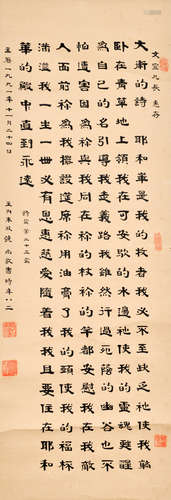 惠存
大衛的詩 耶和華是我的牧者我必不至缺乏祂使我躺
臥在青草地上領我在可安歇的水邊祂使我的靈魂甦醒
為自己的名引導我走義路我雖然行過死蔭的幽谷也不
怕遭害因為祢與我同在祢的杖祢的竿都安慰我在我敵
人面前祢為我擺設筵席祢用油膏了我的頭使我的福杯
滿溢我一生一世必有恩惠慈愛隨着我我且要住在耶和
華的殿中直到永遠 詩篇第二十三篇
主曆一九九一年十一月二十四日 主內末肢 敬書時年八二